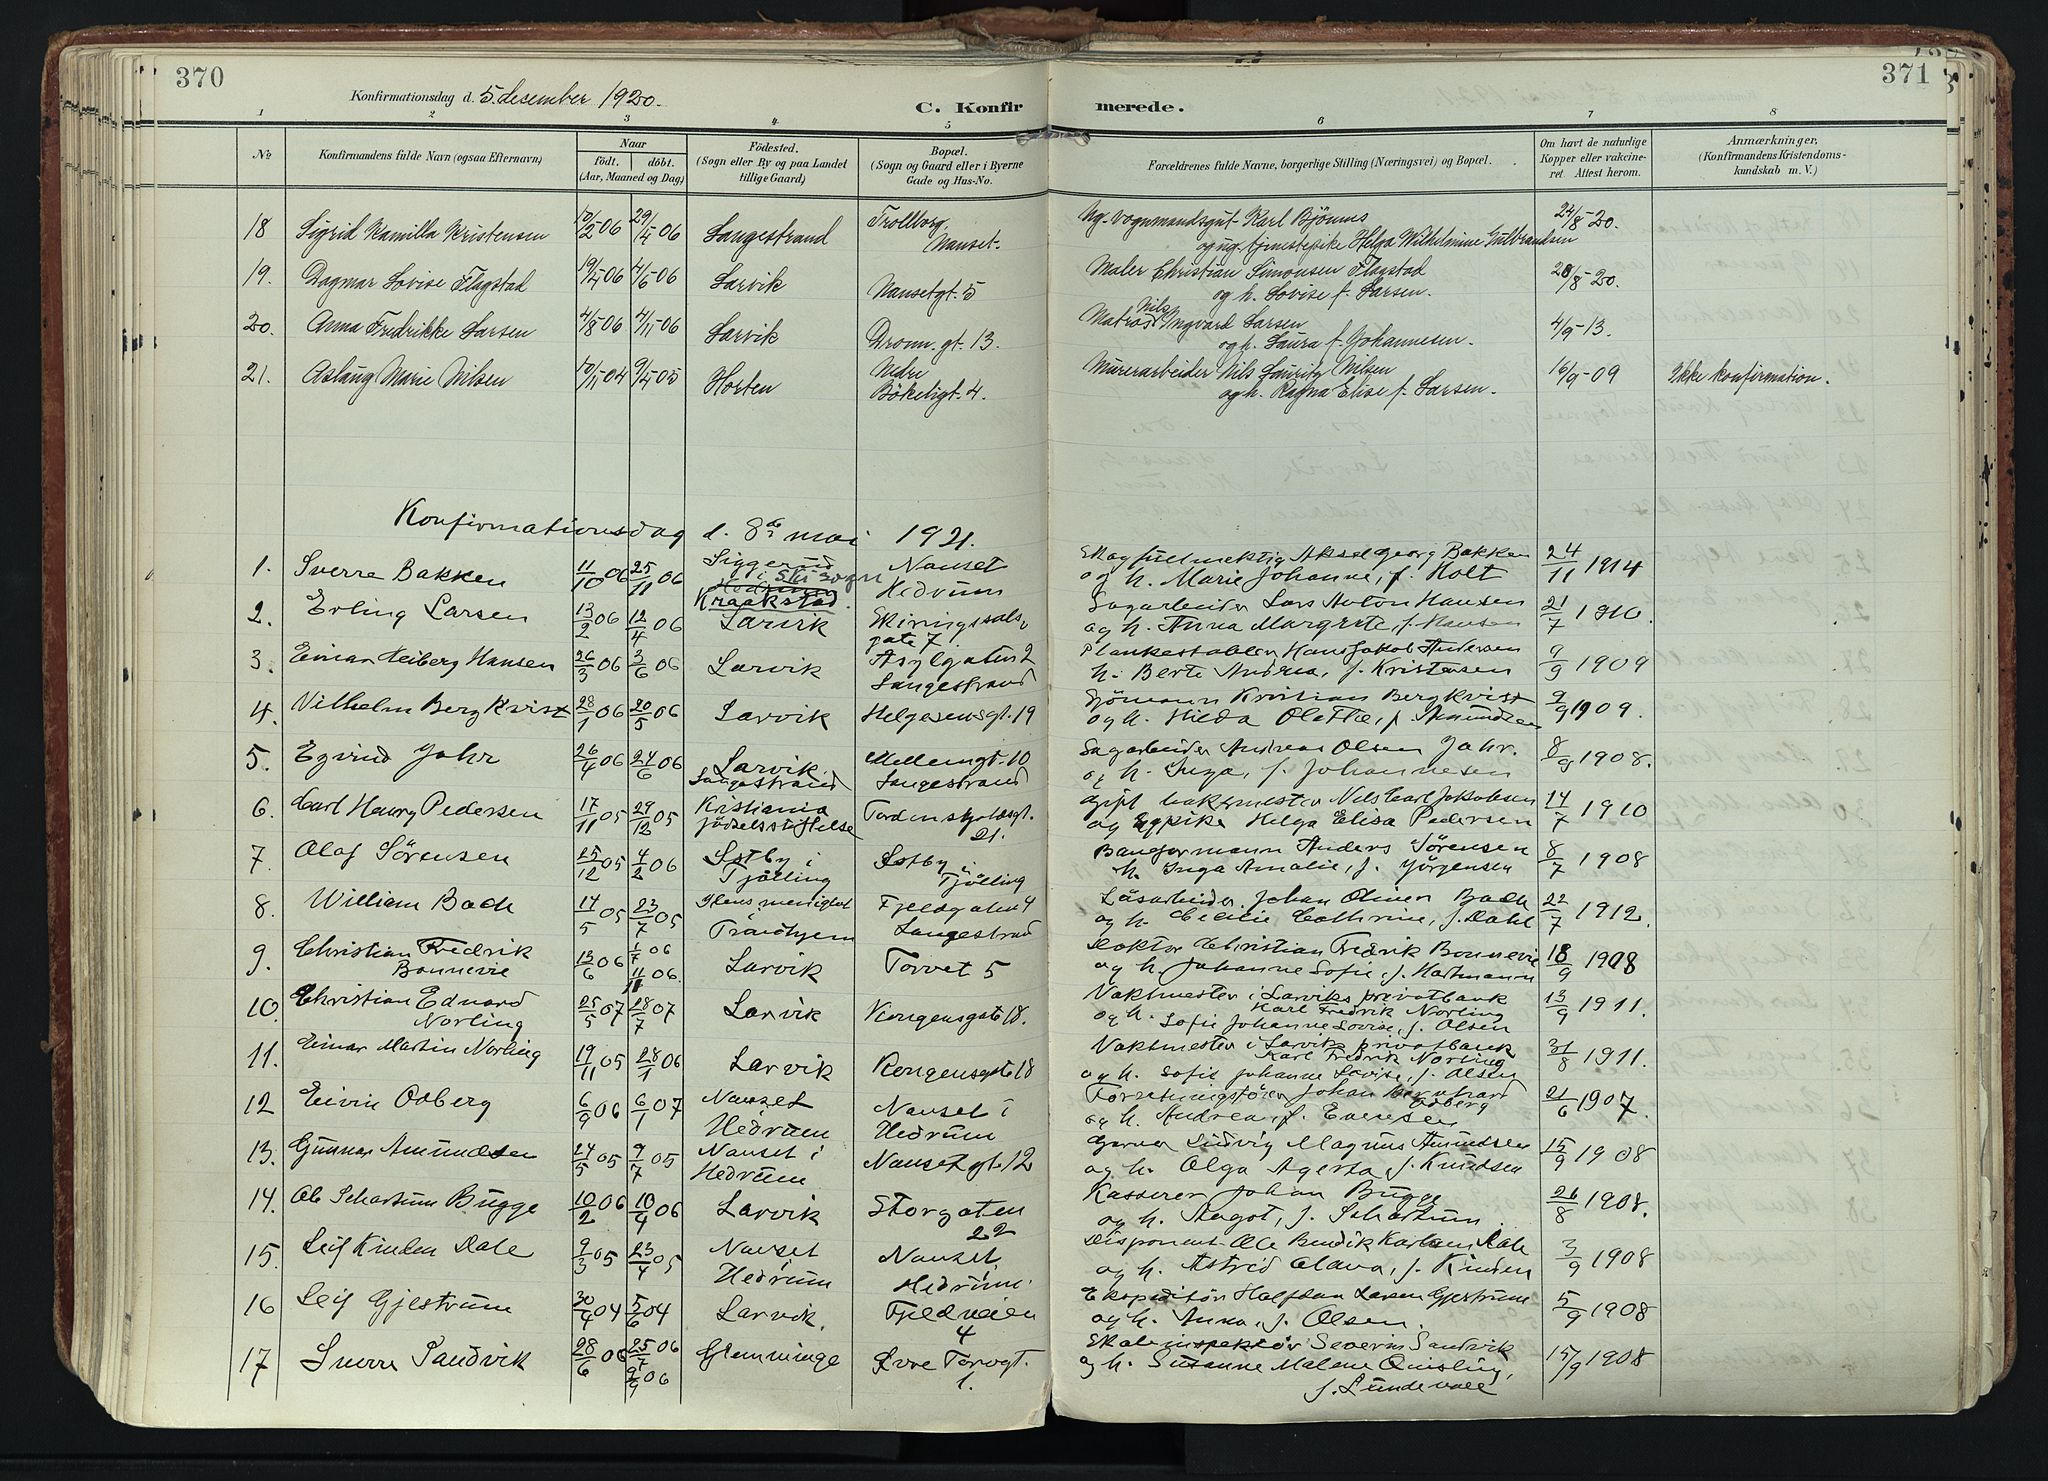 370
371
Konfirmationsdag d. 5. desember 1920.
C. Konfirmerede.
1 2 3 4 5 6 7 8
№ Konfirmandens fulde Navn (ogsaa Efternavn) Naar født. døbt. (Aar, Maaned og Dag) Fødested. (Sogn eller By og paa Landet tillige Gaard) Bopæl. (Sogn og Gaard eller i Byerne Gade og Hus-No. Forældrenes fulde Navne, borgerlige Stilling (Næringsvei) og Bopæl. Om havt de naturlige Kopper eller vakcineret. Attest herom. Anmærkninger, (Konfirmandens Kristendomskundskab m. V.)
18 Sigrid Kamilla Kristensen 10/2 06 29/4 06 Langestrand Trollborg, Nanset. Ug. vognmandsgut Karl Bjönnes
og ug. tjenestepike Helga Wilhelmine Gulbrandsen 24/8-20.
19. Dagmar Lovise Flagstad 19/4 06 4/6 06 Larvik Nansetgt. 5 Maler Christian Simonsen Flagstad
og h. Lovise f. Larsen. 28/8-20.
20. Anna Fredrikke Larsen 4/8-06 4/11-06 Larvik Dronn. gt. 13. Matros Nils Ingvard Larsen
og h. Laura f. Johannesen. 4/9-13.
21. Aslaug Marie Nilsen 10/11 04 9/4 05 Horten Nedre Bökeligt. 4. Murerarbeider Nils Lauritz Nilsen
og h. Ragna Elise f. Larsen. 16/9-09 Ikke konfirmation.
Konfirmationsdag d. 8de mai 1921.
1. Sverre Bakken 11/10 06 25/11 06 Siggerud i Ski sogn Kraakstad. Nanset Hedrum Skogfuldmektig Aksel Georg Bakken
og h. Marie Johanne, f. Holt 24/11 1914
2. Erling Larsen 13/2 06 12/4 06 Larvik Skiringssals gate 7. Sagarbeider Lars Anton Hansen
og h. Anna Margrete, f. Hansen 21/7 1910.
3. Einar Heiberg Hansen 26/3 06 3/6 06 Larvik Asylgaten 2 Langestrand Plankestabler Hans Jakob Andersen
h. Berte Andrea, f. Kristensen 9/9 1909
4. Vilhelm Bergkvist 28/1 06 20/5 06 Larvik Helgesensgt. 19 Sjömann Kristian Bergkvist
og h. Hilda Olefie, f. Amundsen 9/9 1909.
5. Eyvind Jahr 26/4 06 24/6 06 Larvik Langestrand Mellemgt. 10 Langestrand Sagarbeider Andreas Olsen Jahr.
og h. Inga, f. Johannesen 8/9 1908.
6. Carl Henry Pedersen 17/11 05 29/12 05 Kristiania födselsstiftelse Tordenskjoldsgt. 21. gift bakermester Nils Carl Jakobsen
og pike Helga Elisa Pedersen 14/7 1910
7. Olaf Sörensen 25/12 05 4/2 06 Østby i Tjölling Østby i Tjölling Baneformann Anders Sörensen
h. Inga Amalie, f. Jörgensen 8/7 1908
8. William Bach 14/5 05 23/7 05 Ilens menighet Trondhjem Fjeldgaten 4 Langestrand Låsarbeider Johan Oliver Bach
og h. Cecilie Cathrine, f. Dahl 22/7 1912.
9. Christian Fredrik Bonnevie 13/6 06 1/7 06 11/11 06. Larvik Torvet 5 Doktor Christian Fredrik Bonnevie
og h. Johanne Sofie, f. Hartmann 18/9 1908
10. Christian Edvard Norling 25/5 07 28/7 07 Larvik Kongensgate 18. Vaktmester i Larviks privatbank
Karl Fredrik Norling
og h. Sofie Johanne Lovise, f. Olsen 13/9 1911.
11. Einar Martin Norling 19/11 05 28/1 06 Larvik Kongensgate 18 Vaktmester i Larviks privatbank
Karl Fredrik Norling
og h. Sofie Johanne Lovise, f. Olsen 31/8 1911.
12 Eivin Odberg 6/9 06 6/1 07 Nanset Hedrum Nanset i Hedrum Forretningsförer Johan Bernhard Odberg
og h. Andrea, f. Evensen 21/6 1907.
13. Gunnar Amundsen 24/5 05 9/7 05 Nanset i Hedrum Nansetgt. 12 Garver Ludvig Magnus Amundsen
og h. Olga Agerta, f. Knudsen 15/9 1908
14. Ole Schartum Bugge 10/2 06 10/4 06 Larvik Storgaten 22 Kasserer Johan Bugge
og h. Aagot, f. Schartum. 26/8 1908.
15. Leif Kinden Dale 9/3 05 23/4 05 Nanset Hedrum Nanset, Hedrum. Disponent Ole Bendik Karlsen Dale
og h. Astrid Olava, f. Kinden 3/9 1908
16 Leif Gjestrum 30/4 04 5/6 04 Larvik. Fjeldveien 4 Ekspeditör Halfdan Larsen Gjestrum
og h. Anna, f. Olsen. 5/9 1908
17 Sverre Sandvik 28/6 06 25/7 06 9/9 06 Glemminge Øvre Torvgt. 1. Skoleinspektör Severin Sandvik
og h. Susanne Malene Qvisling,
f. Lundevall 15/9 1908